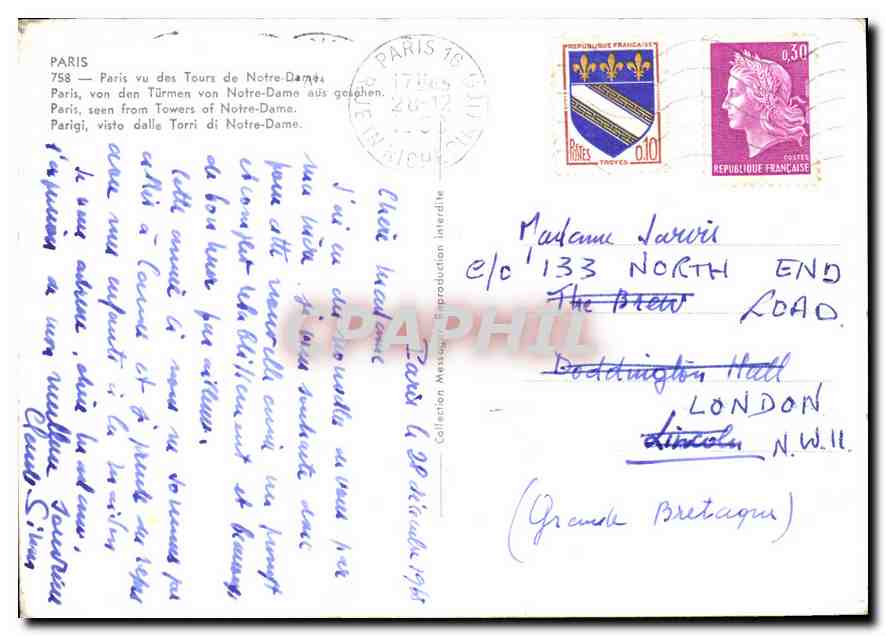 PARIS
758 — Paris vu des Tours de Notre-Dame.
Paris, von den Türmen von Notre-Dame aus gesehen.
Paris, seen from Towers of Notre-Dame.
Parigi, visto dalle Torri di Notre-Dame.
PARIS 16
17H45
28-12
REPUBLIQUE FRANÇAISE
POSTES
0.10
TROYES
0,30
POSTES
REPUBLIQUE FRANÇAISE
Collection Messager Reproduction interdite
CPAPHIL
Paris le 28 décembre 1968
Chère Madame
J'ai eu des nouvelles de vous par
ma mère. Je vous souhaite donc
pour cette nouvelle année un prompt
et complet rétablissement et beaucoup
de bonheur par ailleurs.
Cette année ci nous ne sommes pas
allés à Cannes et je prends du repos
avec mes enfants à la maison
Je vous adresse, chère Madame,
l'expression de mon meilleur souvenir
Claude Simon
Madame Jarvis
c/o 133 NORTH END
The Brew ROAD.
Doddington Hall
LONDON
Lincoln N.W.11.
(Grande Bretagne)